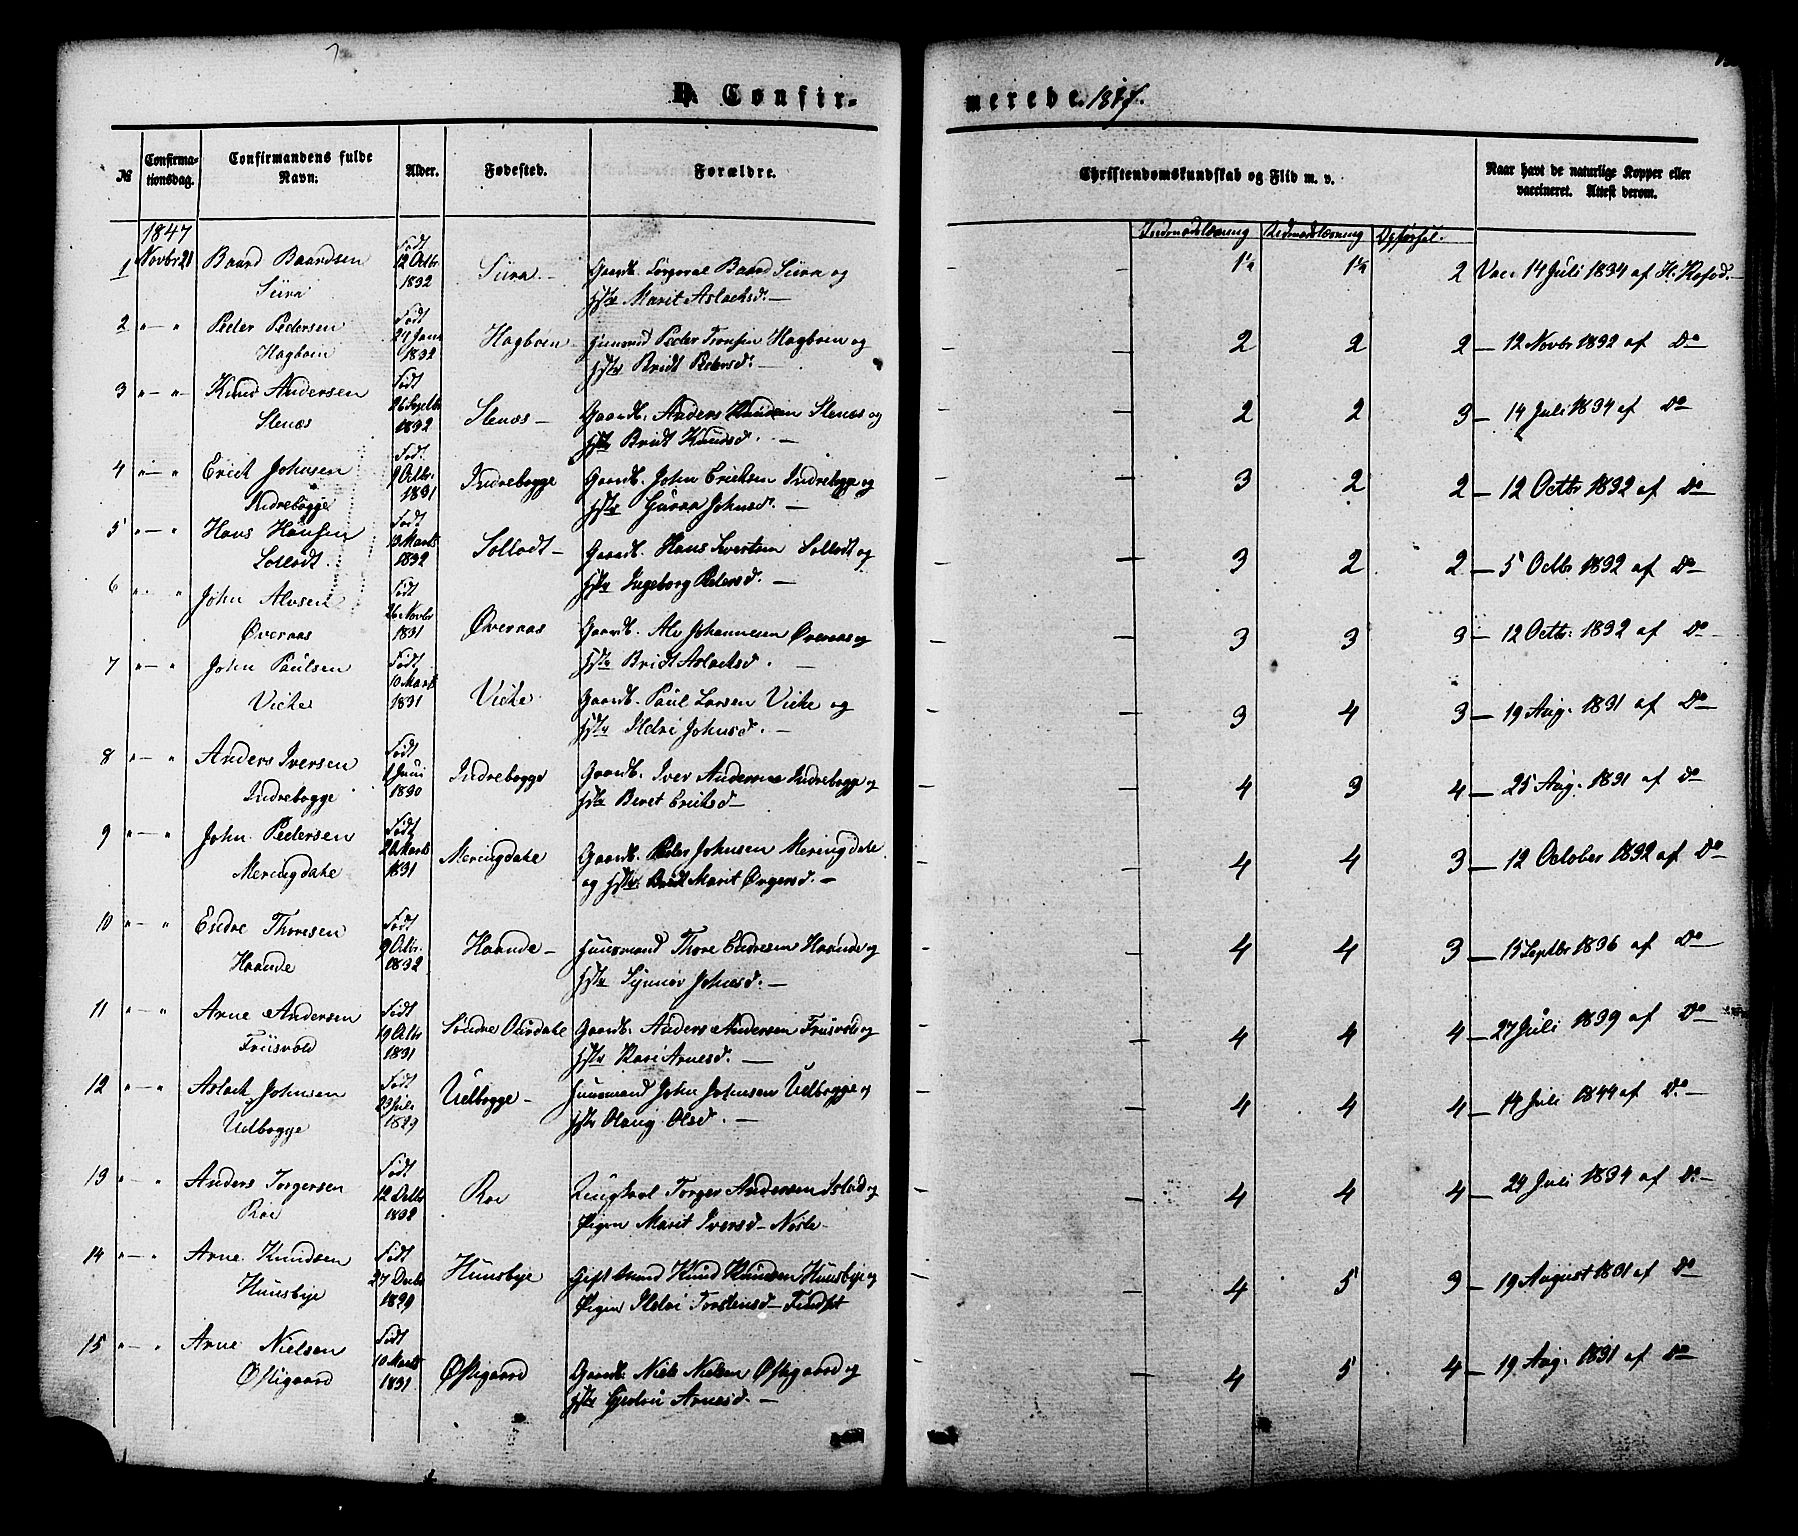 D. Confir-
merede. 1847.
№
Confirma-
tionsdag.
Confirmandens fulde
Navn.
Alder.
Fødested.
Forældre.
Christendomskundskab og Flid m. v.
Naar havt de naturlige Kopper eller
vaccineret. Attest derom.
Indenadslæsning Udenadslæsning Opførsel.
1847
1 Novbr 21 Baard Baardsen Født
Siira 12 Octbr 1832 Siira - Gaardb. Baard Siira og
Hstr Marit Aslachsd. — 1½ 1½ 2 Vac. 14 Juli 1834 af H.
2 " — " Peder Pedersen Født
Hagboen 24 Janr 1832 Hagboen Huusmd Peder Hagboen og
Hstr Bridt Pedersd. — 2 2 2 — 12 Novbr 1832 af Do
3 " — " Knud Andersen Født
Slenæs 26 Septbr 1832 Slenæs — Gaardb. Anders Knudsen Slenæs og
Hstr Bridt Knudsd. — 2 2 3 — 14 Juli 1834 af Do
4 " — " Erich Johnsen Født
Indrebogge 9 Octbr 1831 Indrebogge Gaardb. John Erichsen Indrebogge og
Hstr Guroa Johnsd. — 3 2 2 — 12 Octbr 1832 af Do
5 " — " Hans Hansen Født
Sollodt 13 Marts 1832 Sollodt — Gaardb. Hans Sollodt og
Hstr Ingeborg Pedersd. — 3 2 2 — 5 Octbr 1832 af Do
6 " — " John Alvsen Født
Øveraas 26 Novbr 1831 Øveraas Gaardb. Alv Johannesen Øveraas og
Hstr Bridt Aslachsd. — 3 3 3 — 12 Octbr: 1832 af Do
7 " — " John Paulsen Født
Viche 10 Marts 1831 Viche Gaardb. Paul Larsen Viche og
Hstr Ildri Johnsd. — 3 4 3 — 19 Aug. 1831 af Do
8 " — " Anders Iversen Født
Indrebogge 1 Juni 1830 Indrebogge Gaardb. Iver Andersen Indrebogge og
Hstr Beret Erichsd — 4 3 4 — 25 Aug. 1831 af Do
9 " — " John Pedersen Født
Meringdahe Marts 1831 Meringdahe Gaardb. Peder Johnsen Meringdahe
og Hstr. Marit — 4 4 3 — 12 October 1832 af Do
10 " — " Endre Thoresen Født
Haande 9 Octbr. 1832 Haande — Huusmand Thore Endresen Haande og
Hstr Synnøv Johnsd. — 4 4 3 — 15 Septbr 1836 af Do
11 " — " Arne Andersen Født
Friisvold 19 Octbr 1831 Søndre Gaardb. Anders Andersen Friisvold og
Hstr Kari Arnesd. — 4 4 4 — 27 Juli 1839 af Do
12 " — " Aslach Johnsen Født
Udbogge 23 Juli 1829 Udbogge — Huusmand John Johnsen Udbogge og
Hstr Olaug Olsd. — 4 4 4 — 14 Juli 1844 af Do
13 " — " Anders Torgersen Født
Roe 12 Octbr 1832 Roe Ungkarl Torger Andersen og
Pigen Marit Iversd — Nøste — 4 4 4 — 24 Juli 1834 af Do
14 " — " Arne Knudsen Født
Huusbye 27 Decbr 1829 Huusbye Gift Mand Knud Knudsen Huusbye og
Pigen Ildri Torstensd — 4 5 3 — 19 August 1831 af Do
15 " — " Arne Nielsen Født
Østigaard 10 Marts 1831 Østigaard Gaardb. Niels Nielsen Østigaard og
Hstr Arnesd. — 4 5 4 — 19 Aug. 1831 af Do